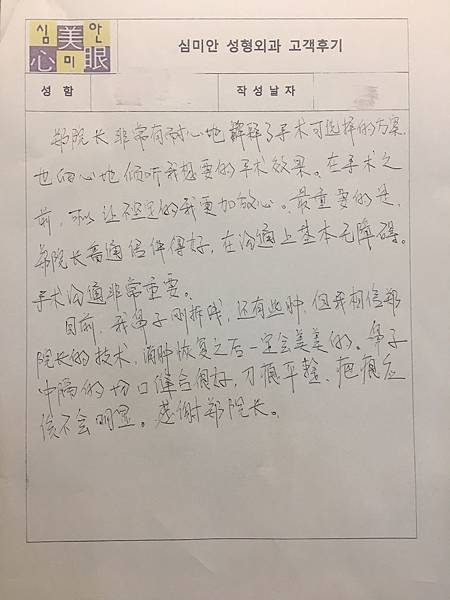 심 美 안
心 미 眼
심미안 성형외과 고객후기
성 함
작성날자
郑院长非常有耐心地解释了手术可选择的方案,
也细心地倾听我想要的手术效果。在手术之
前,可以让不安的我更加放心。最重要的是,
郑院长普通话伴得好,在沟通上基本无障碍。
手术沟通非常重要。
目前,我鼻子刚拆线,还有些肿,但我相信郑
院长的技术,消肿恢复之后一定会美美的。鼻子
中隔的切口缝合很好,刀痕平整、疤痕应
该不会明显。感谢郑院长。